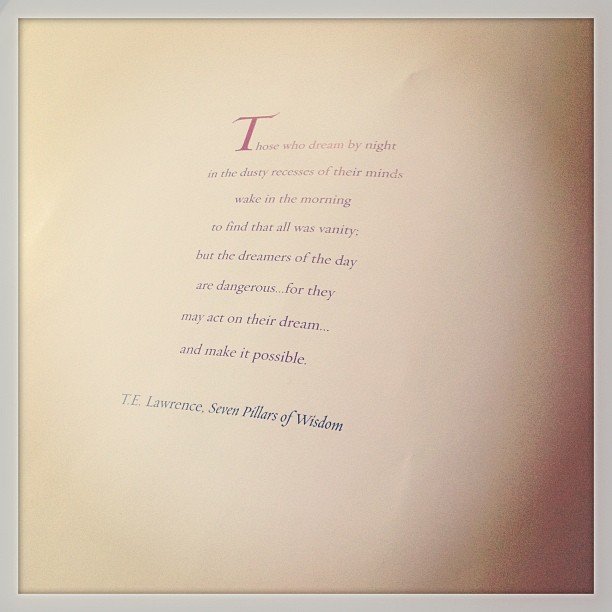 Those who dream by night
in the dusty recesses of their minds
wake in the morning
to find that all was vanity;
but the dreamers of the day
are dangerous...for they
may act on their dream...
and make it possible.
T.E. Lawrence, Seven Pillars of Wisdom